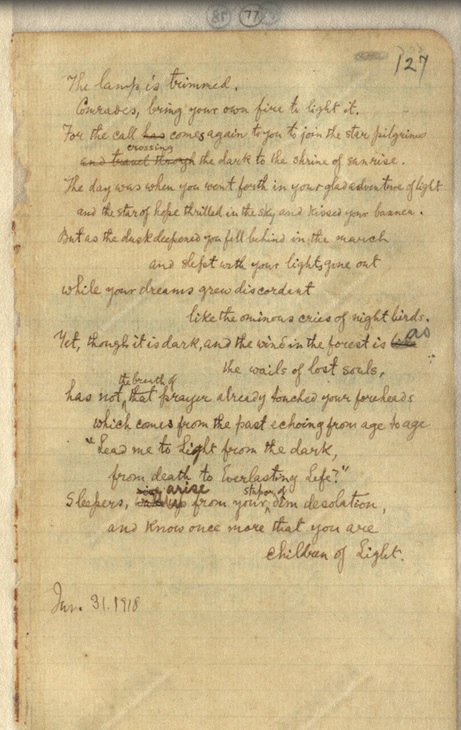 85 77
127
The lamp is trimmed.
Comrades, bring your own fire to light it.
For the call has comes again to you to join the star pilgrims
crossing
and travel through the dark to the shrine of sunrise.
The day was when you went forth in your glad adventure of light
and the star of hope thrilled in the sky and kissed your banner.
But as the dusk deepened you fell behind in the march
and slept with your lights gone out
while your dreams grew discordant
like the ominous cries of night birds.
Yet, though it is dark, and the wind in the forest is as
the wails of lost souls,
the breath of
has not that prayer already touched your foreheads
which comes from the past echoing from age to age
"Lead me to Light from the dark,
from death to Everlasting Life?"
arise stupor of
Sleepers, up from your dim desolation,
and know once more that you are
children of Light.
Jan. 31. 1918